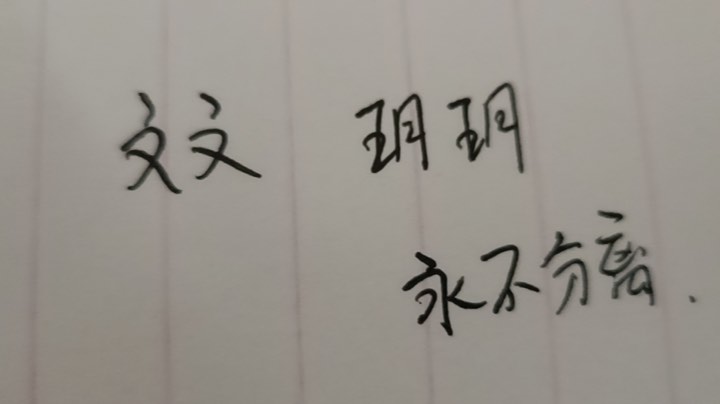 文文 玥玥
永不分离.